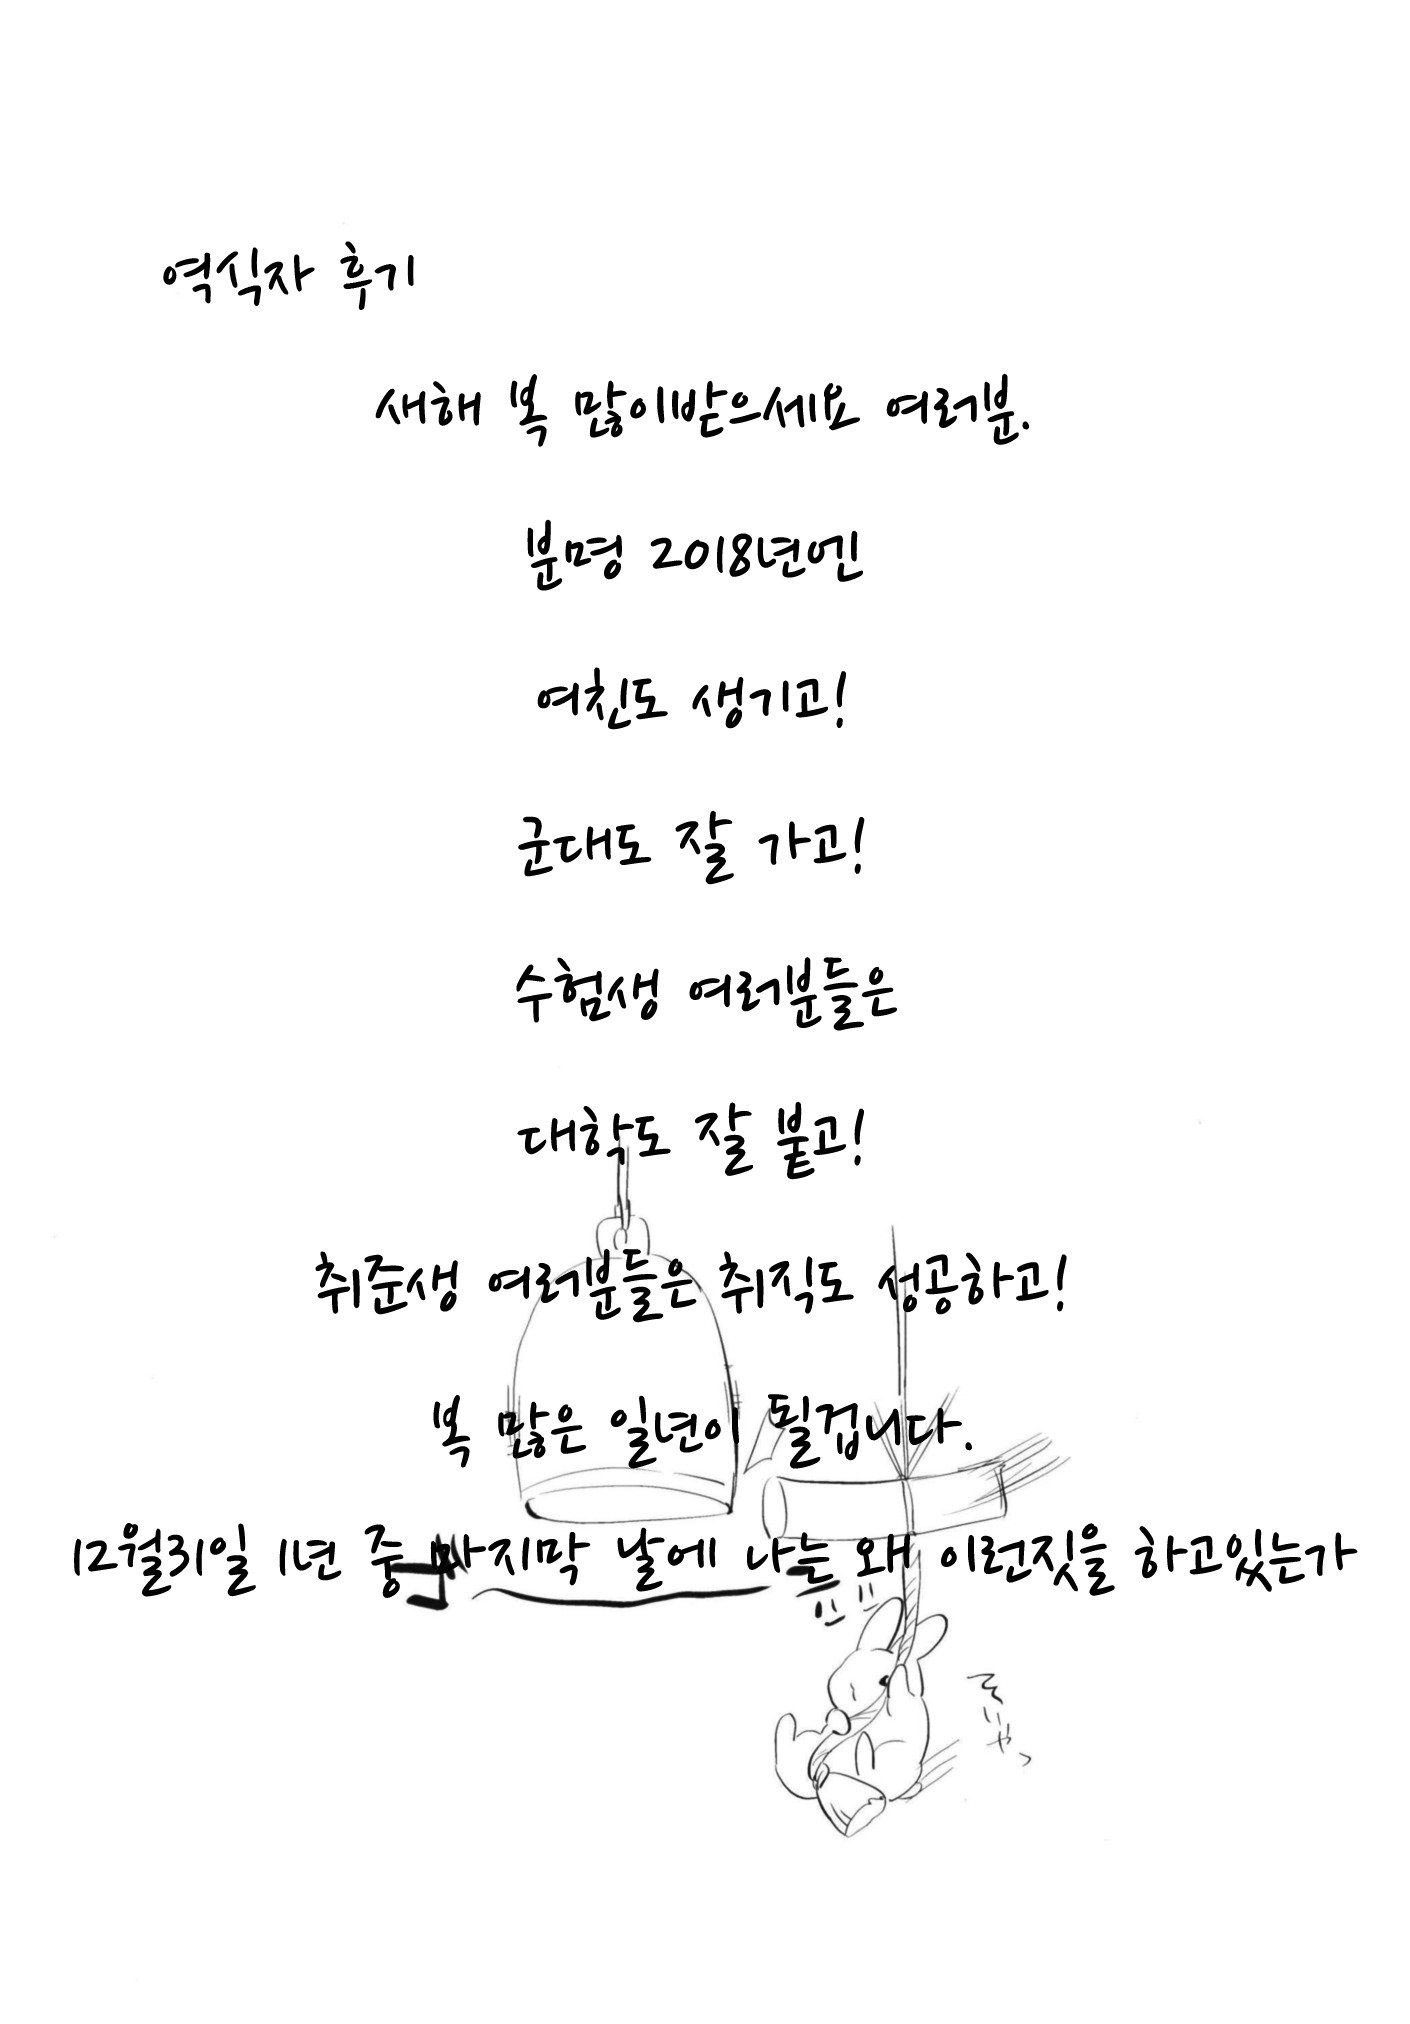 역식자 후기
새해 복 많이받으세요 여러분.
분명 2018년엔
여친도 생기고!
군대도 잘 가고!
수험생 여러분들은
대학도 잘 붙고!
취준생 여러분들은 취직도 성공하고!
복 많은 일년이 될겁니다.
12월31일 1년 중 마지막 날에 나는 왜 이런짓을 하고있는가